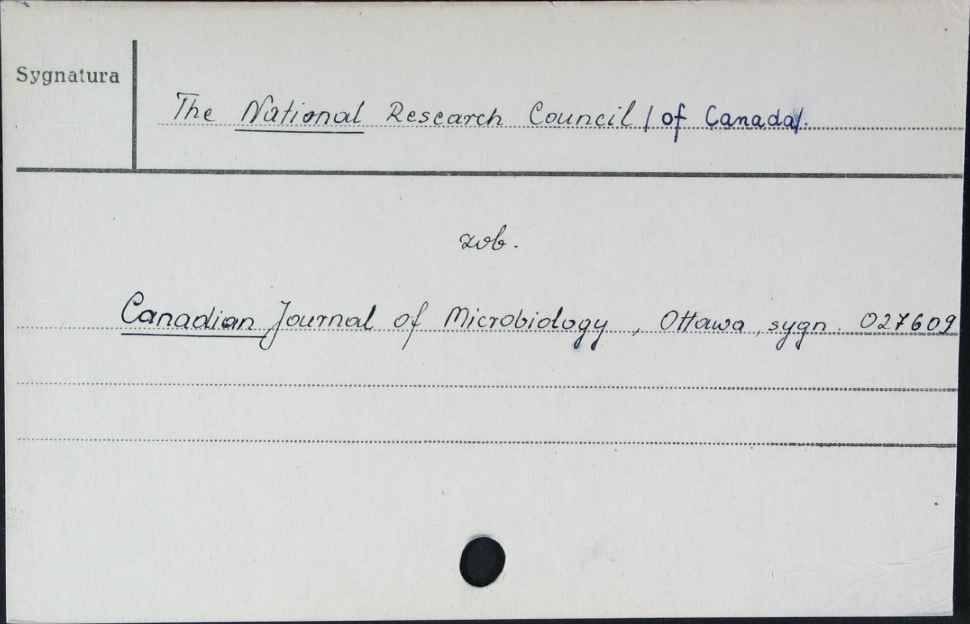 Sygnatura
The National Research Council / of Canada/.
zob.
Canadian Journal of Microbiology, Ottawa, sygn. 027609